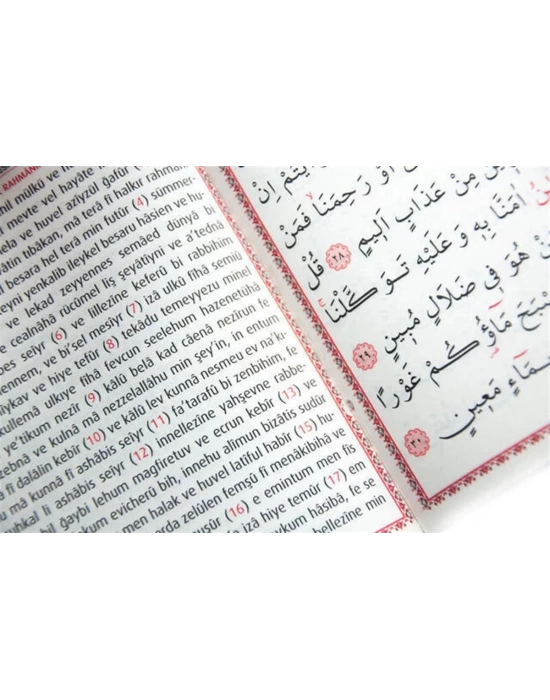 RAHMAN
mülkü ve
mevte vel hayâte
ve huvel azîyzül gafûr
tıbâkan, mâ terâ fî halkır rahmân
besara hel terâ min futûr (4) sümmer-
yenkalib ileykel besaru hâsien ve hu-
ve lekad zeyyennes semâed dünyâ bi
cealnâhâ rücûmel liş şeyâtîyni ve a'tednâ
seîyr (6) ve lillezîne keferû bi rabbihim
ve bi'sel mesîyr (7) izâ ulkû fîhâ semiû
ve hiye tefûr (8) tekâdu temeyyezu minel
ulkıye fîhâ fevcun seelehum hazenetühâ
e'tikum nezîr (9) kâlû belâ kad câenâ nezîrun fe
ve kulnâ mâ nezzelallâhu min şey'in, in entum
fî dalâlin kebîr (10) ve kâlû lev kunnâ nesmeu ev na'k-
mâ kunnâ fî ashâbis seîyr (11) fa'terafû bi zenbihim, fe
li ashâbis seîyr (12) innellezîne yahşevne rabbe-
bil ğaybi lehum mağfiretuv ve ecrun kebîr (13) ve
evicherû bih, innehu alîmun bizâtis sudûr
men halak ve huvel latîful habîr (15) hu-
zelûlen femşû fî menâkibihâ ve
nuşûr (16) e emintum men fis
izâ hiye temûr (17) em
hâsibâ, fe se
bellezîne min
اِنْ
اَوْ رَحِمَنَا فَمَنْ
مِنْ عَذَابٍ اَلِيمٍ ٢٨ قُلْ
اٰمَنَّا بِهِ وَعَلَيْهِ تَوَكَّلْنَا
هُوَ فِي ضَلَالٍ مُبِينٍ ٢٩
مَاؤُكُمْ غَوْرًا
مَعِينٍ ٣٠